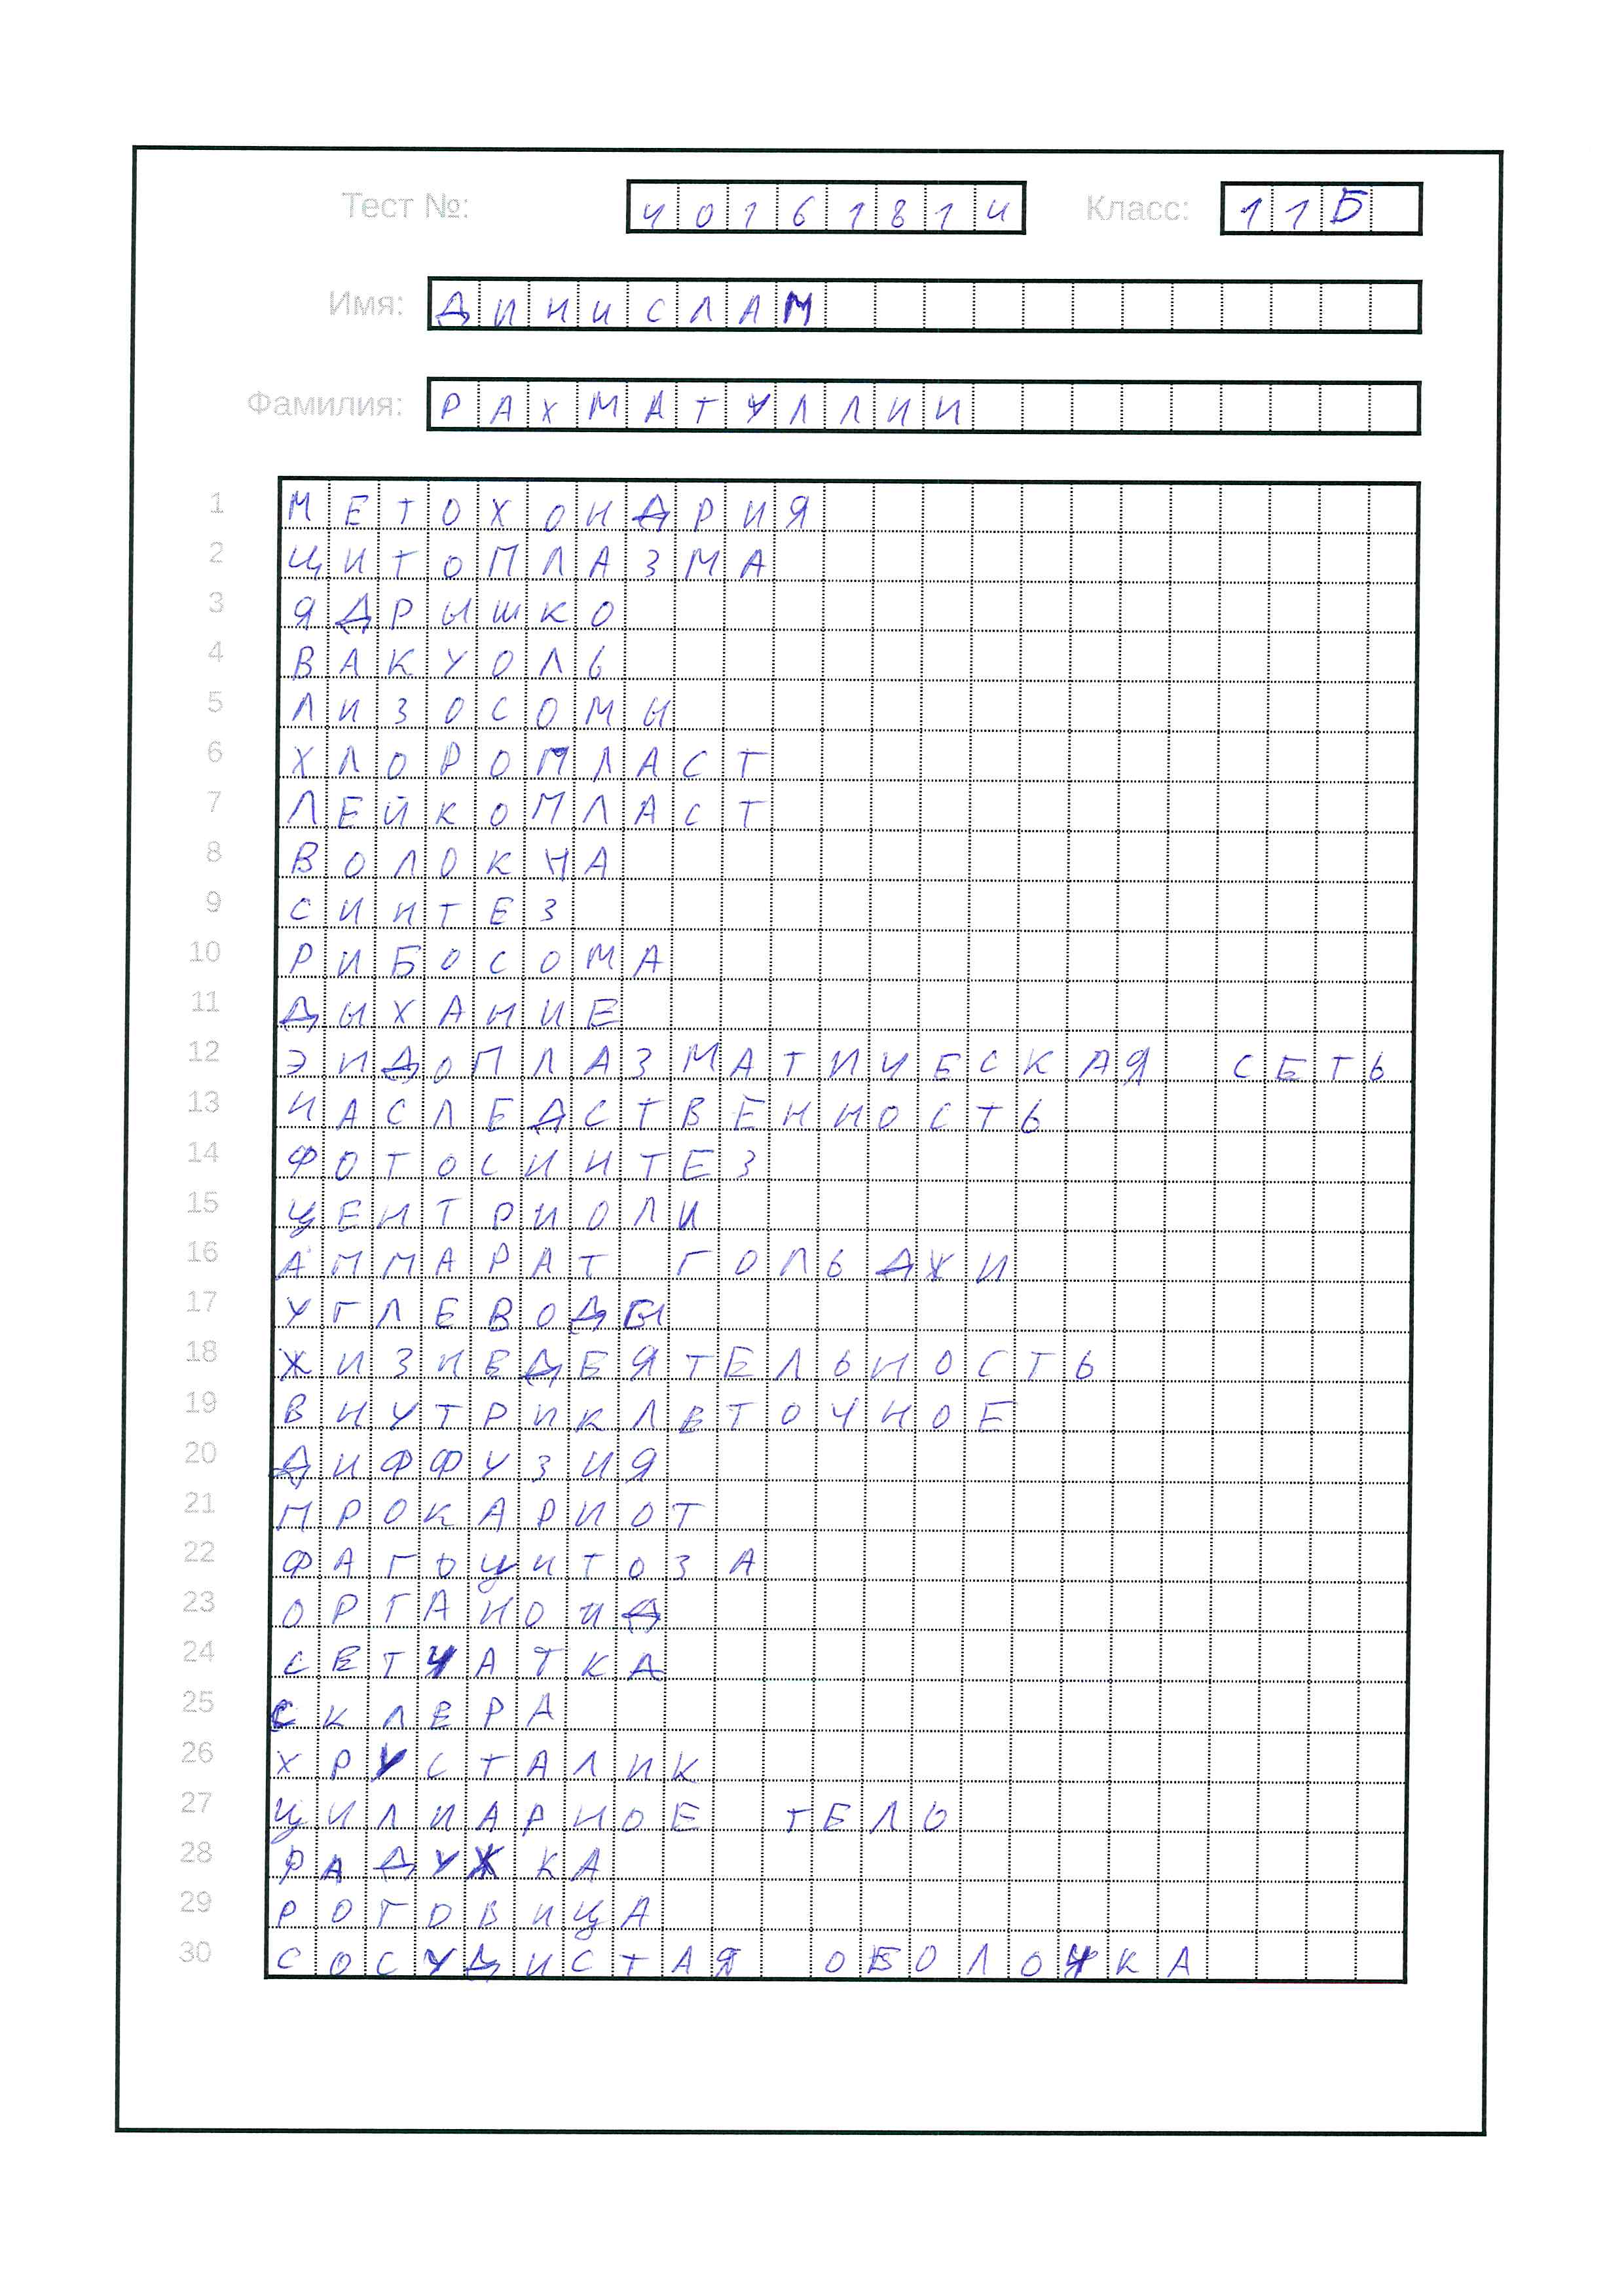 Тест №: 40161814 Класс: 11Б
Имя: ДИНИСЛАМ
Фамилия: РАХМАТУЛЛИН
1 МЕТОХОНДРИЯ
2 ЦИТОПЛАЗМА
3 ЯДРЫШКО
4 ВАКУОЛЬ
5 ЛИЗОСОМЫ
6 ХЛОРОПЛАСТ
7 ЛЕЙКОПЛАСТ
8 ВОЛОКНА
9 СИНТЕЗ
10 РИБОСОМА
11 ДЫХАНИЕ
12 ЭНДОПЛАЗМАТИЧЕСКАЯ СЕТЬ
13 НАСЛЕДСТВЕННОСТЬ
14 ФОТОСИНТЕЗ
15 ЦЕНТРИОЛИ
16 АППАРАТ ГОЛЬДЖИ
17 УГЛЕВОДЫ
18 ЖИЗНЕДЕЯТЕЛЬНОСТЬ
19 ВНУТРИКЛЕТОЧНОЕ
20 ДИФФУЗИЯ
21 ПРОКАРИОТ
22 ФАГОЦИТОЗА
23 ОРГАНОИД
24 СЕТЧАТКА
25 СКЛЕРА
26 ХРУСТАЛИК
27 ЦИЛИАРНОЕ ТЕЛО
28 РАДУЖКА
29 РОГОВИЦА
30 СОСУДИСТАЯ ОБОЛОЧКА